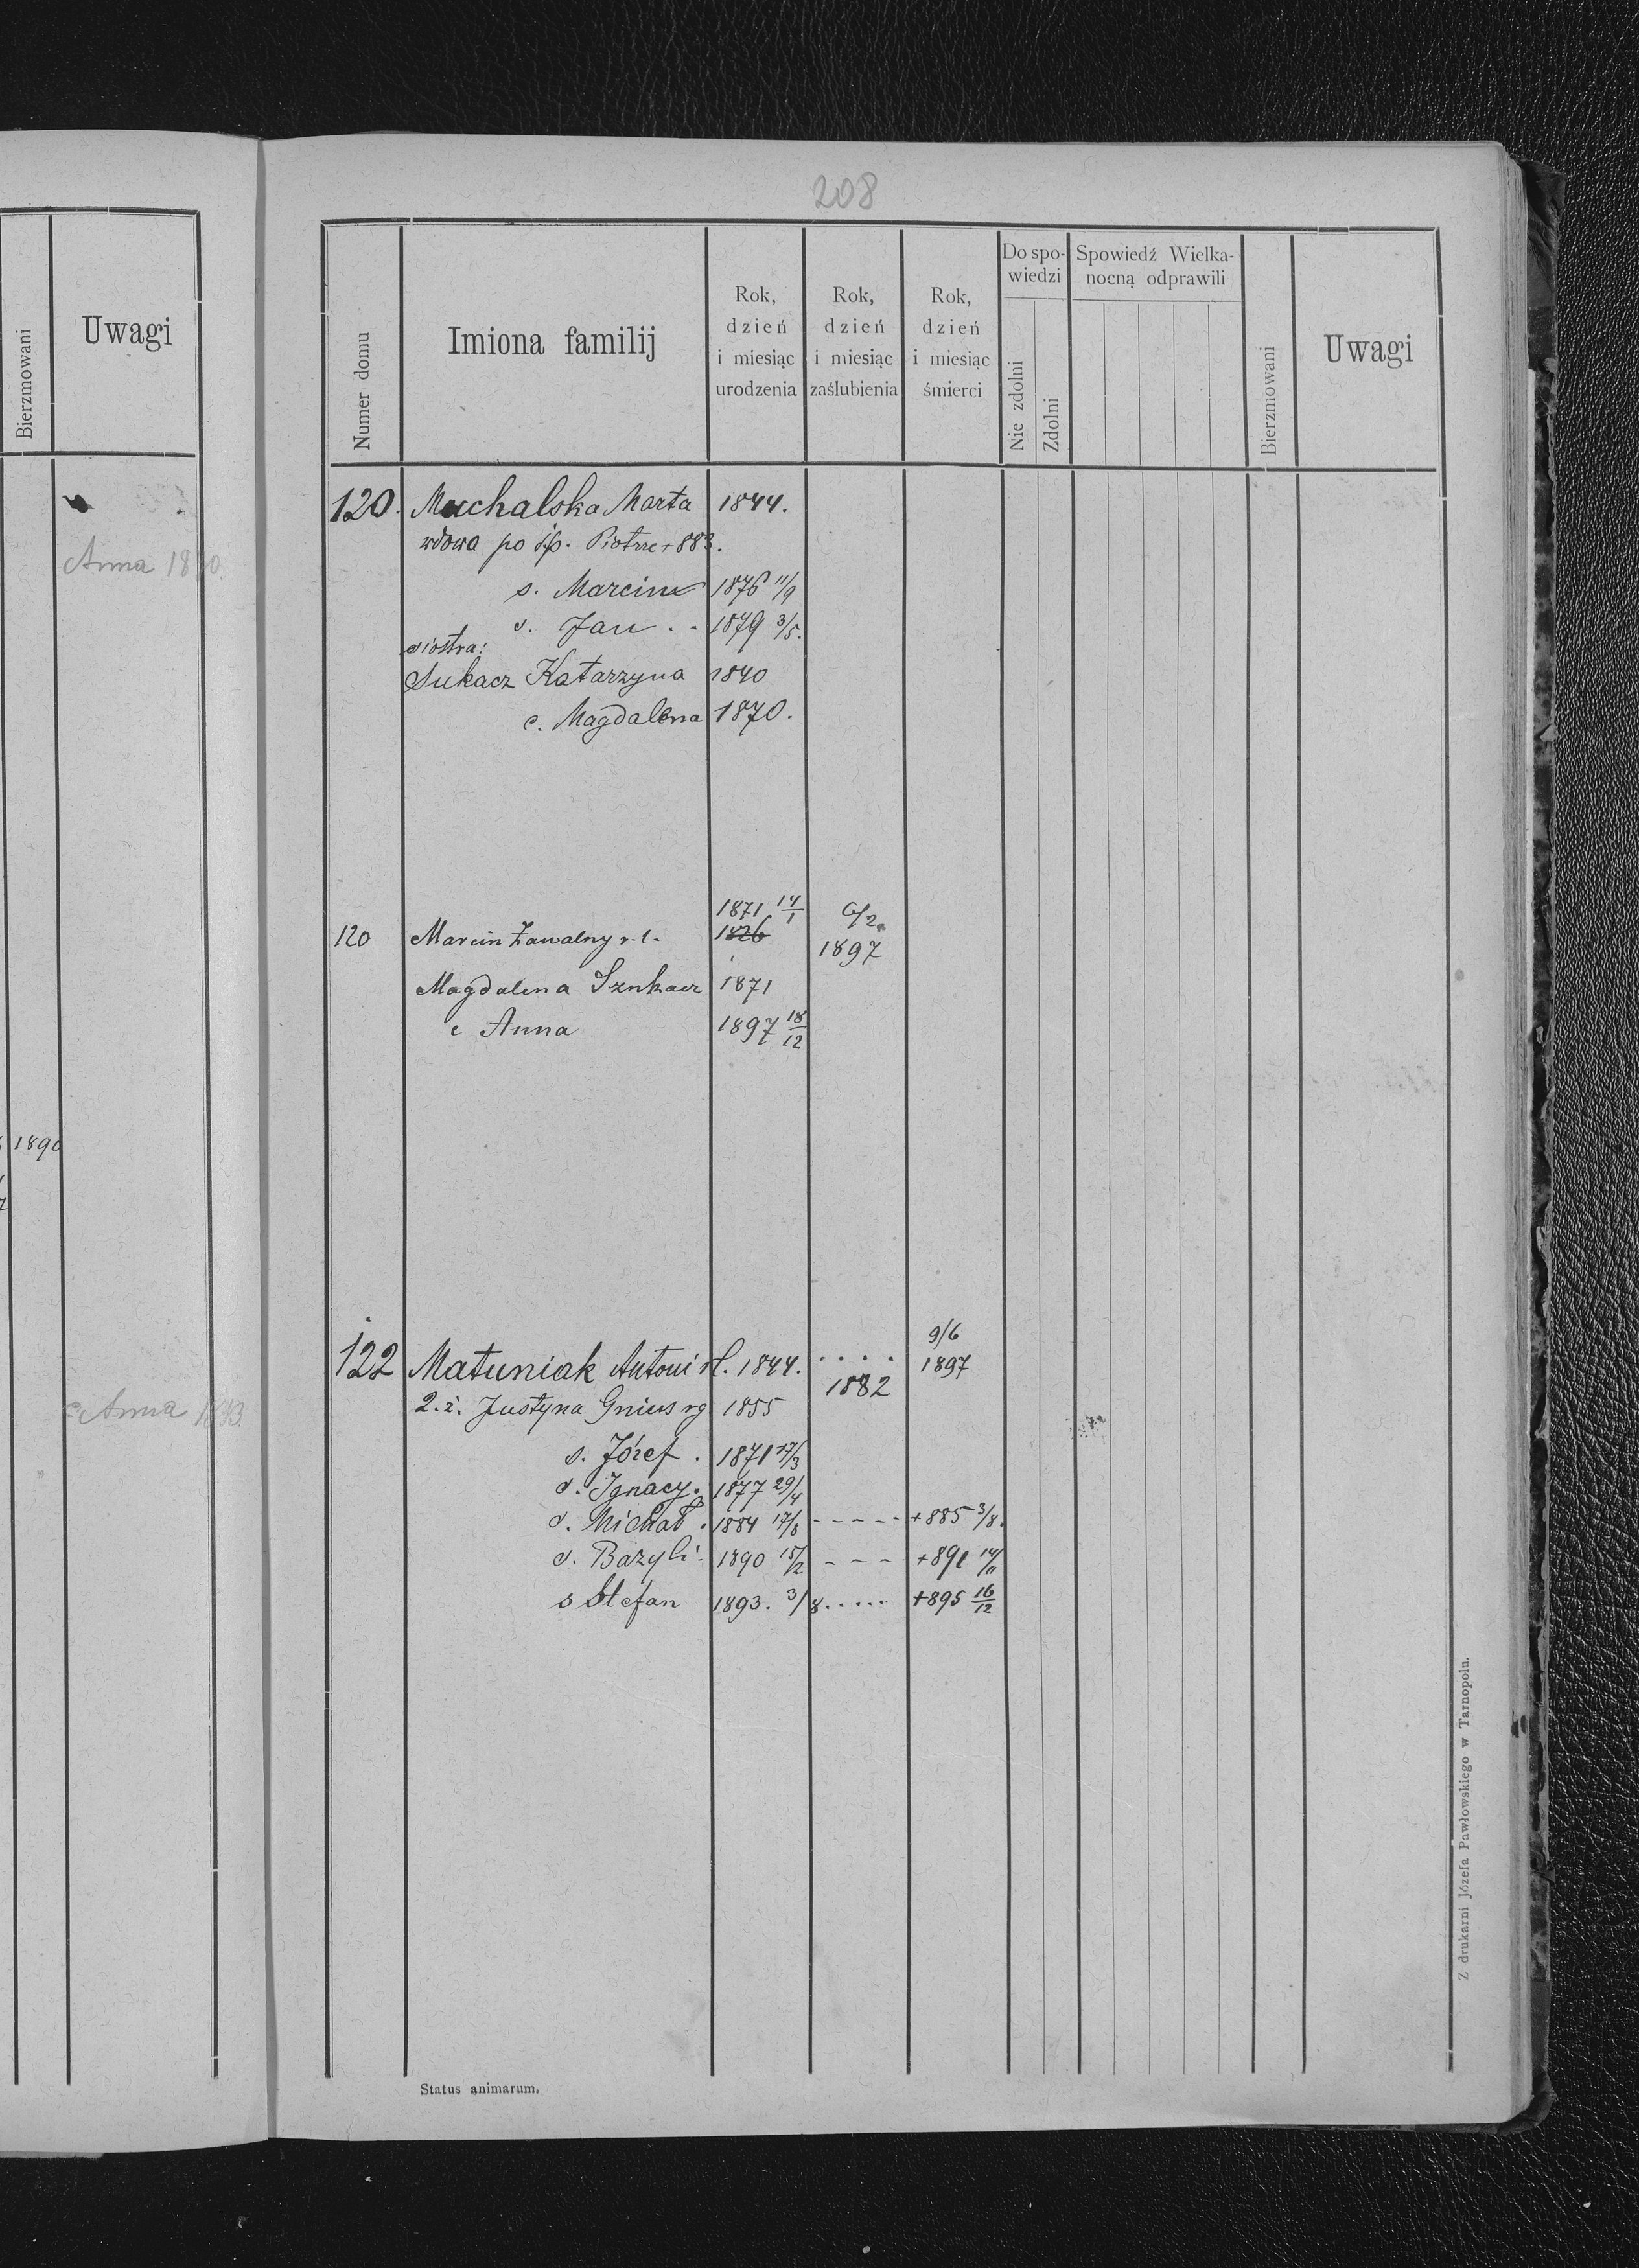 Bierzmowani
Uwagi
Anna 1890
1890
c Anna 1893
208
Numer domu
Imiona familij
Rok, dzień i miesiąc urodzenia
Rok, dzień i miesiąc zaślubienia
Rok, dzień i miesiąc śmierci
Do spowiedzi
Nie zdolni
Zdolni
Spowiedź Wielkanocną odprawili
Bierzmowani
Uwagi
120. Muchalska Marta 1844.
wdowa po ś.p. Piotrze +883.
s. Marcin 1876 11/9
s. Jan . . 1879 3/5.
siostra:
Sukacz Katarzyna 1840
c. Magdalena 1870.
1871 14/1 6/2
120 Marcin Zawalny r.l. 1826 1897
Magdalena Sznkacz 1871
c Anna 1897 18/12
9/6
122 Matuniak Antoni rl. 1844. . . . . 1897
1882
2.ż. Justyna Gnius rg 1855
s. Józef . 1871 17/3
s. Ignacy. 1877 29/4
s. Michał . 1884 17/8 - - - - - +885 3/8.
s. Bazyli 1890 15/2 - - - +891 14/11
s Stefan 1893. 3/8 . . . . . +895 16/12
Status animarum.
Z drukarni Józefa Pawłowskiego w Tarnopolu.